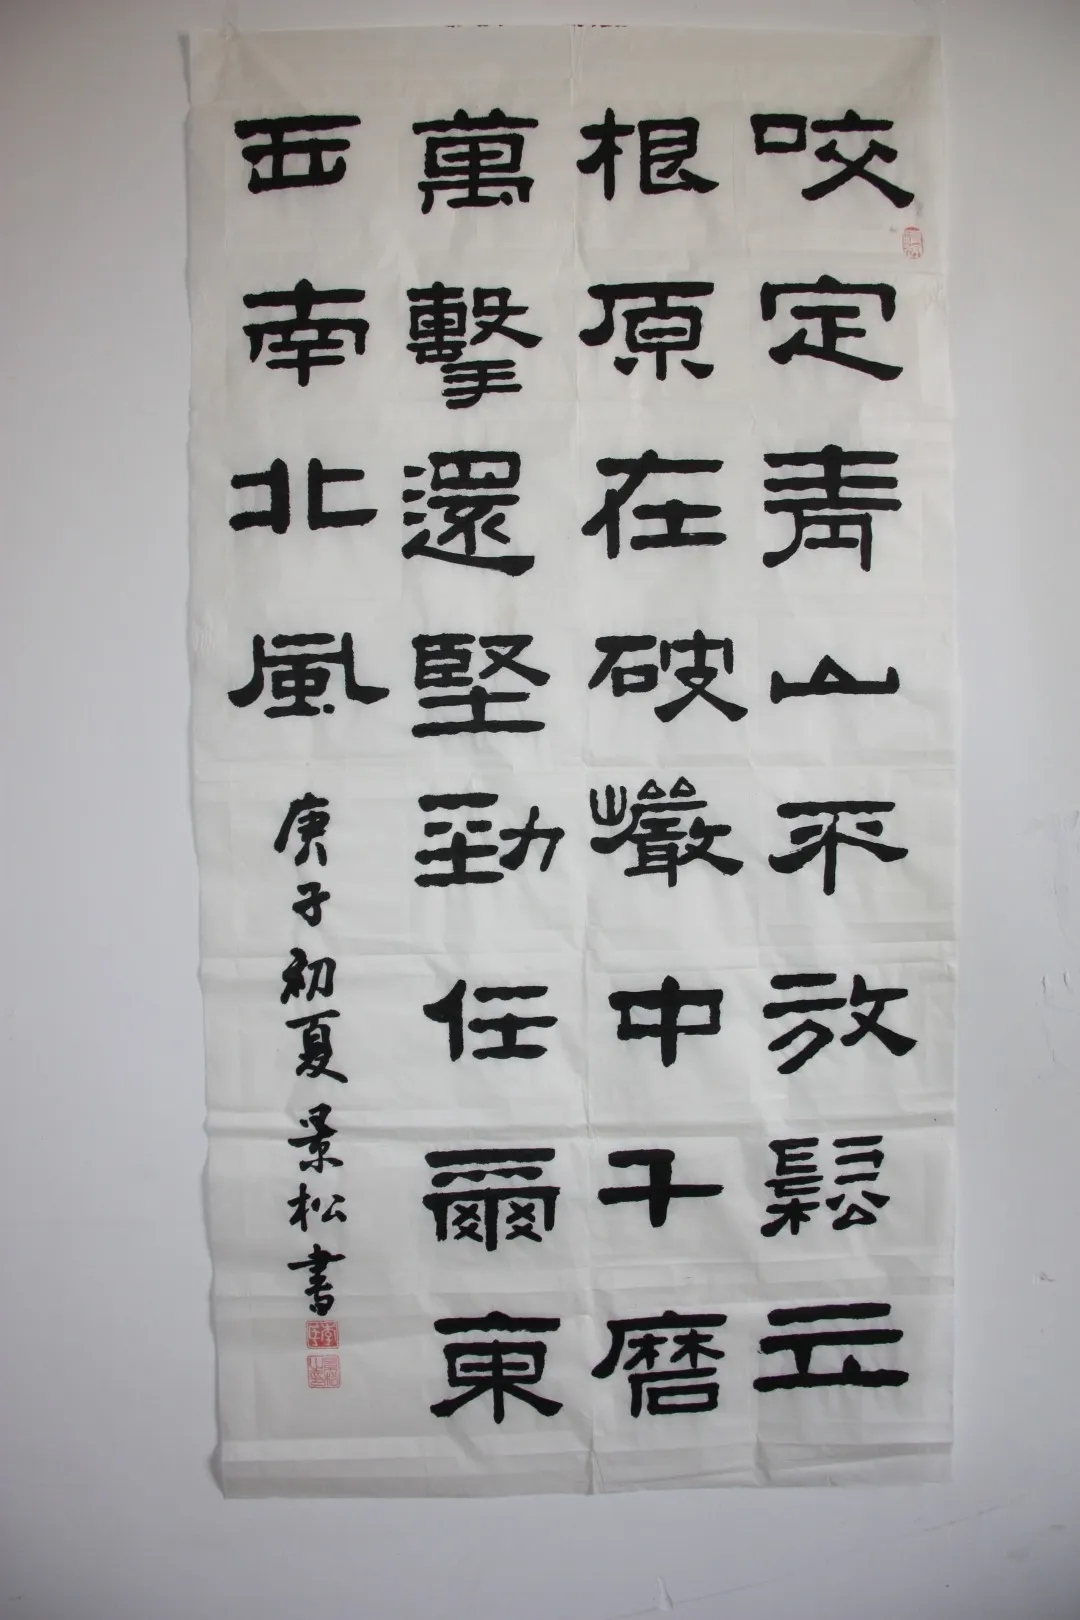 咬定青山不放鬆立
根原在破巖中千磨
萬擊還堅勁任爾東
西南北風
庚子初夏景松書